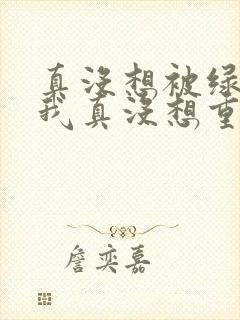 真没想被绿
我真没想重
詹奕嘉